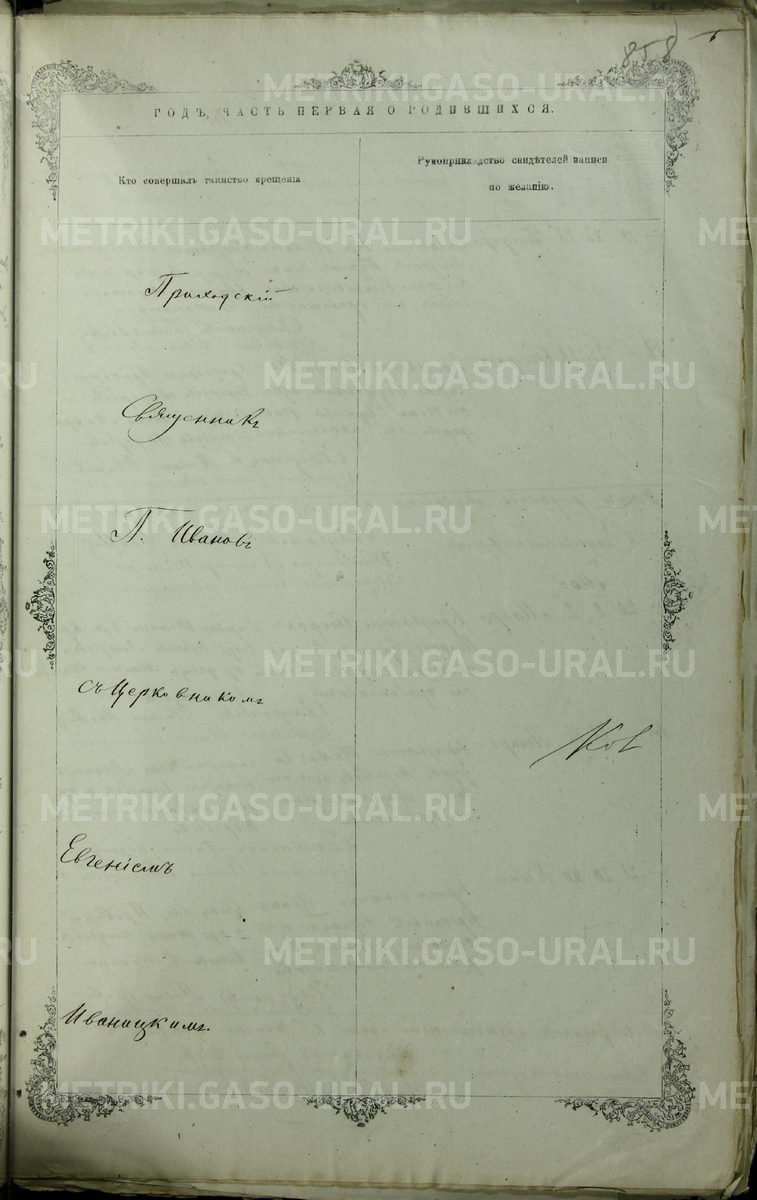 858
ГОДЪ, ЧАСТЬ ПЕРВАЯ О РОДИВШИХСЯ.
Кто совершалъ таинство крещенія
Рукоприкладство свидѣтелей записи
по желанію.
Приходскій
Священникъ
П. Ивановъ
съ Церковникомъ
Евгеніемъ
Иваницкимъ.
METRIKI.GASO-URAL.RU